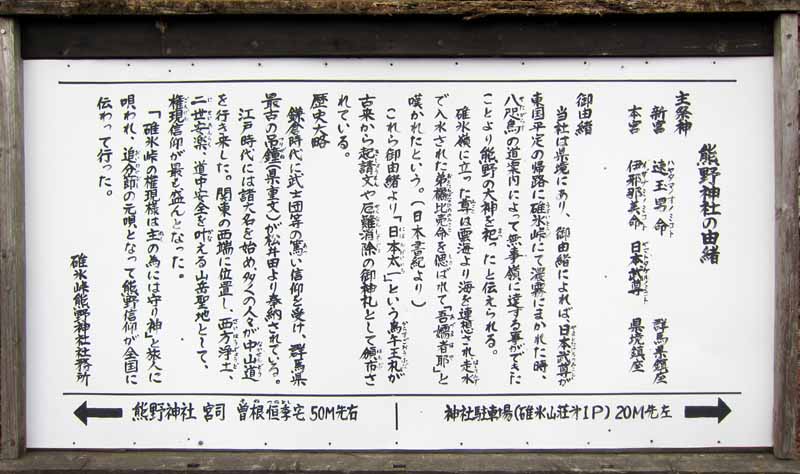 熊野神社の由緒
主祭神
新宮 速玉男命 群馬県鎮座
本宮 伊邪那美命 日本武尊 県境鎮座
御由緒
当社は県境にあり、御由緒によれば、日本武尊が
東国平定の帰路に碓氷峠にて濃霧にまかれた時、
八咫烏の道案内によって無事嶺に達する事ができた
ことより熊野の大神を祀ったと伝えられる。
碓氷嶺に立った尊は雲海より海を連想され走水
で入水された弟橘比売命を偲ばれて「吾嬬者耶」と
嘆かれたという。(日本書紀より)
これら御由緒より「日本太一」という烏午王札が
古来から起請文や厄難消除の御神札として頒布さ
れている。
歴史大略
鎌倉時代に武士団等の篤い信仰を受け、群馬県
最古の吊鐘(県重文)が松井田より奉納されている。
江戸時代には諸大名を始め多くの人々が中山道
を行き来した。関東の西端に位置し、西方浄土、
二世安楽、道中安全を叶える山岳聖地として、
権現信仰が最も盛んとなった。
「碓氷峠の権現様は主の為には守り神」と旅人に
唄われ、追分節の元唄となって熊野信仰が全国に
伝わって行った。
碓氷峠熊野神社社務所
熊野神社 宮司 曽根恒季宅 50M先右
神社駐車場(碓氷山荘才1P) 20M先左